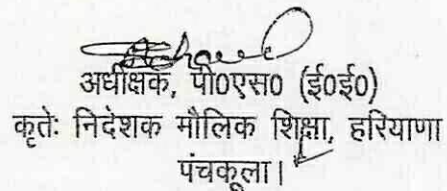 अधीक्षक, पी0एस0 (ई0ई0)
कृतेः निदेशक मौलिक शिक्षा, हरियाणा
पंचकूला।